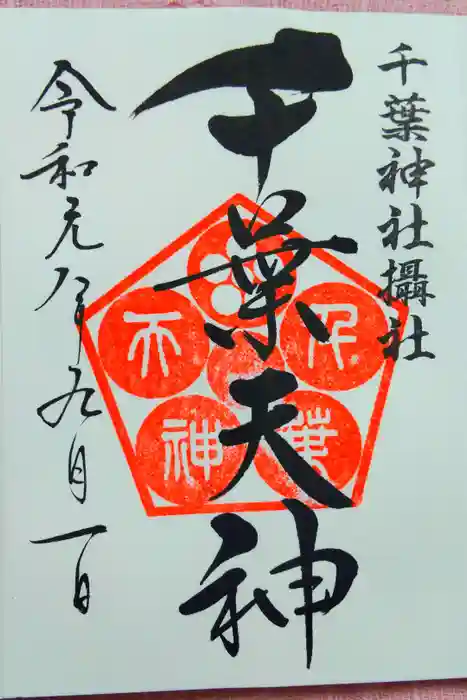 千葉神社攝社
千葉天神
千葉天神
令和元年九月一日